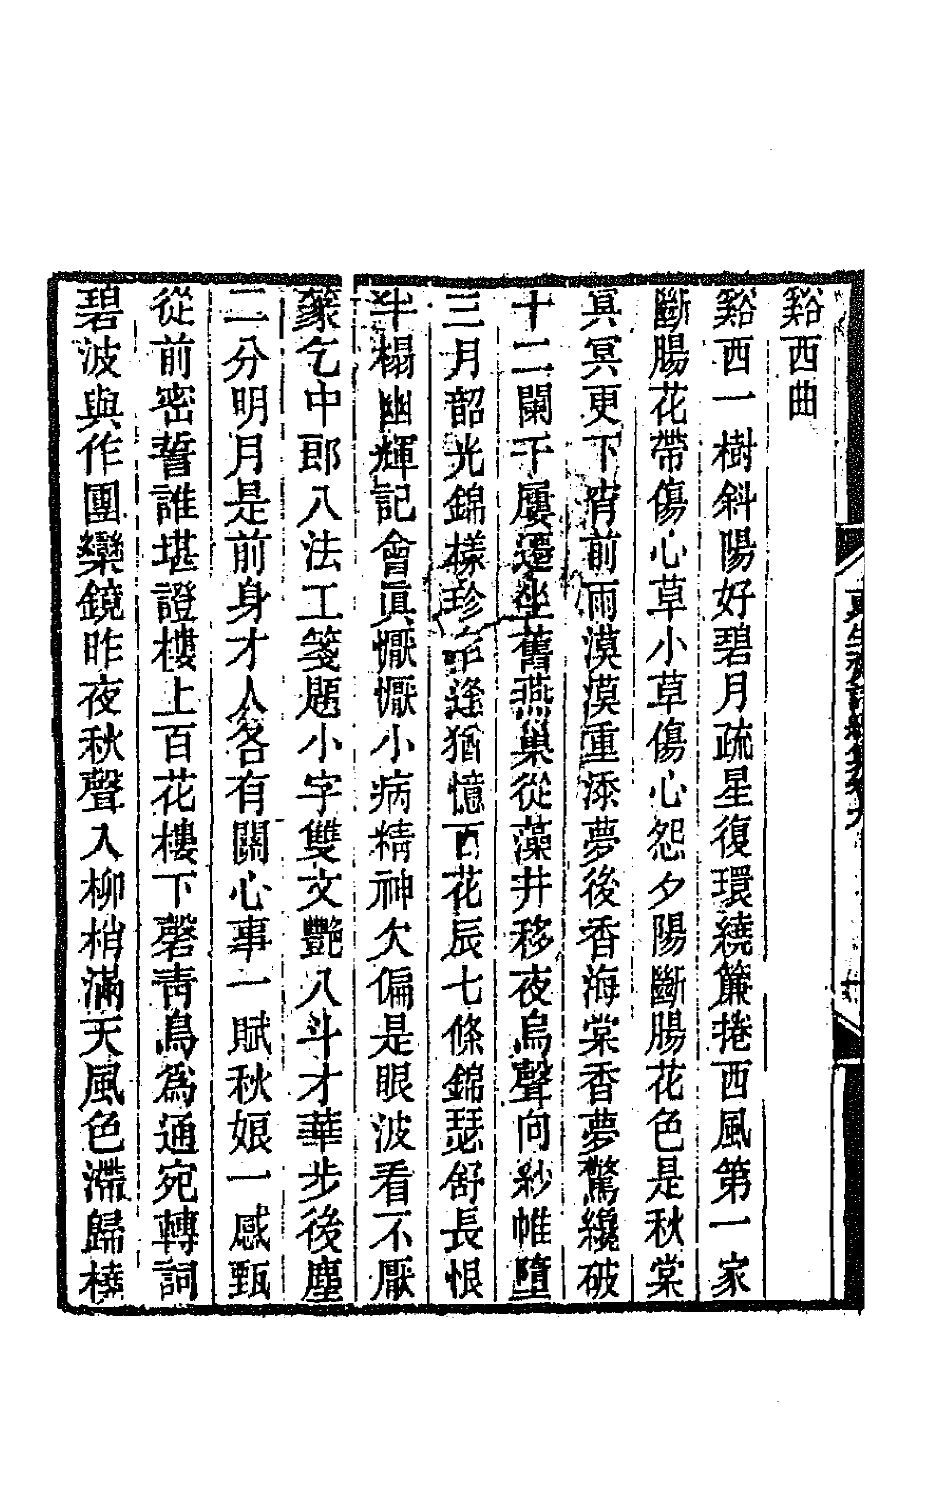 更生齋詩續集卷九
十
谿西曲
谿西一樹斜陽好碧月疏星復環繞簾捲西風第一家
斷腸花帶傷心草小草傷心怨夕陽斷腸花色是秋棠
冥冥更下宵前雨漠漠重添夢後香海棠香夢驚纔破
十二闌干屢遷坐舊燕巢從藻井移夜烏聲向紗帷墮
三月韶光錦樣珍逢猶憶百花辰七條錦瑟舒長恨
半榻幽輝記會眞懨懨小病精神欠偏是眼波看不厭
篆乞中郎八法工箋題小字雙文艷八斗才華步後塵
二分明月是前身才人各有關心事一賦秋娘一感甄
從前密誓誰堪證樓上百花樓下磬靑鳥爲通宛轉詞
碧波與作團欒鏡昨夜秋聲入柳梢滿天風色滯歸橈